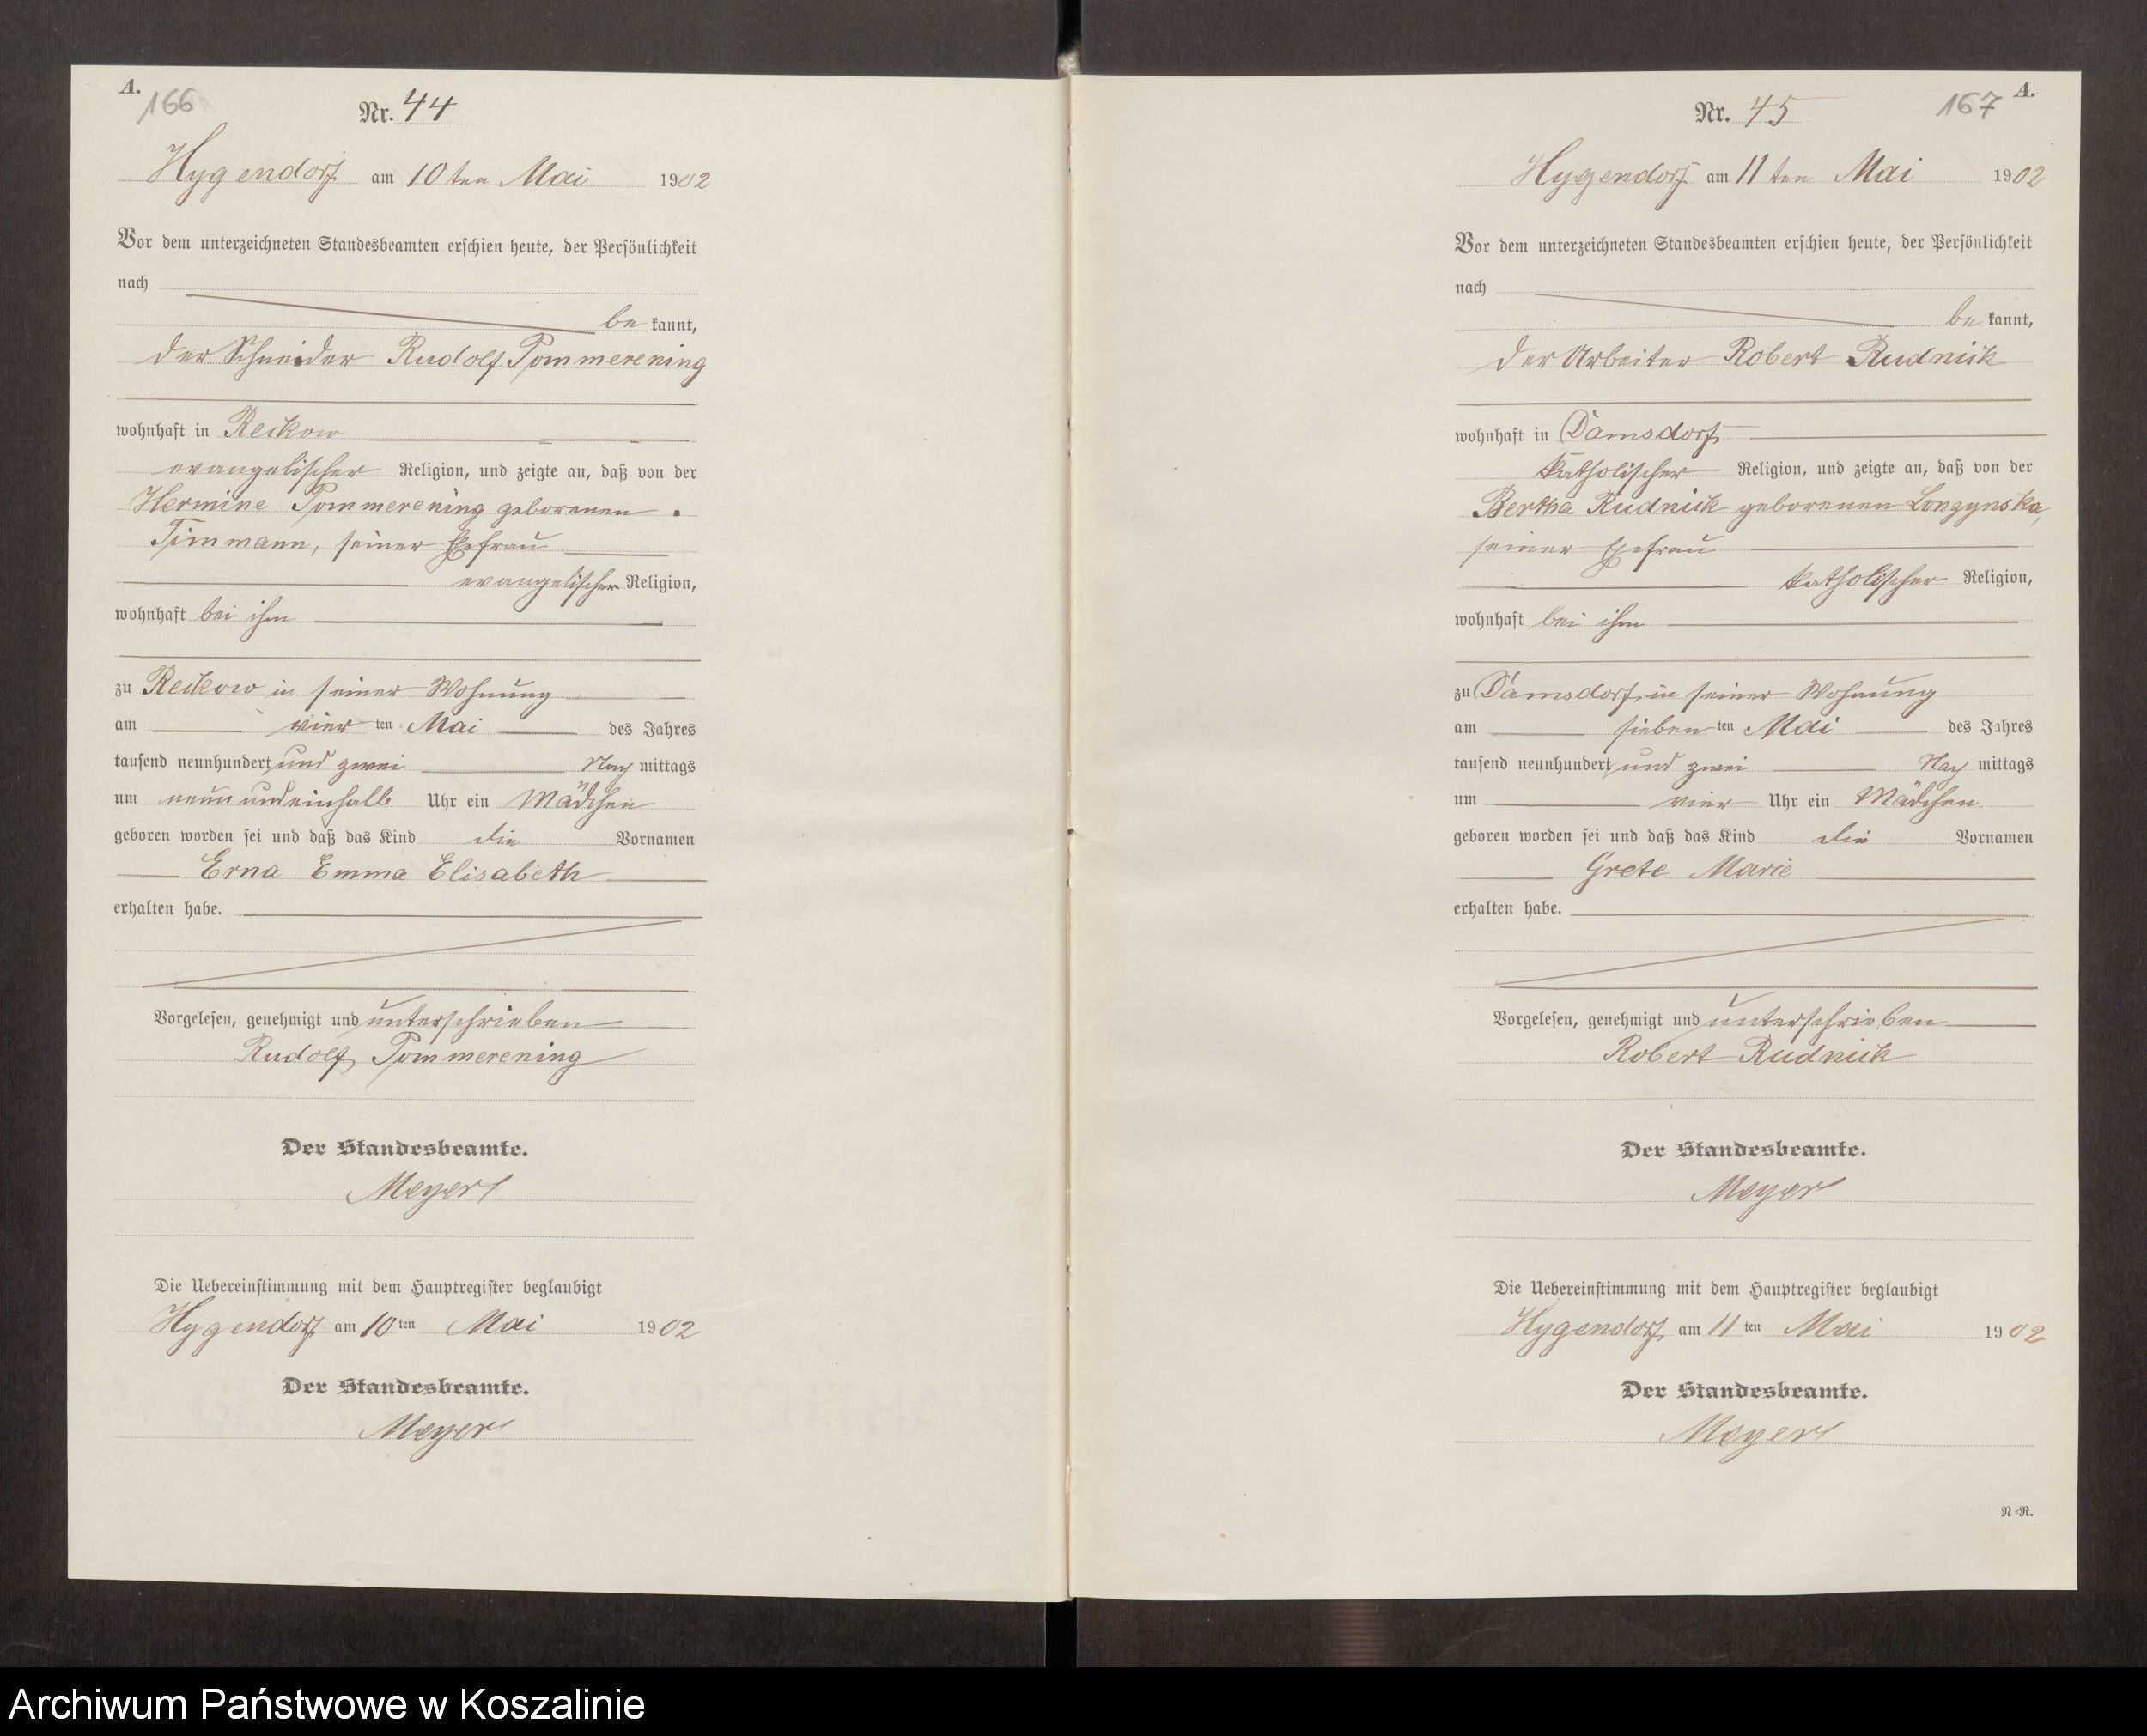 A.
166
Nr. 44
Hygendorf am 10ten Mai 1902
Vor dem unterzeichneten Standesbeamten erschien heute, der Persönlichkeit
nach
be kannt,
der Schneider Rudolf Pommerening
wohnhaft in Reckow
evangelischer Religion, und zeigte an, daß von der
Hermine Pommerening geborenen
Timmann, seiner Ehefrau
evangelischer Religion,
wohnhaft bei ihm
zu Reckow in seiner Wohnung
am vier ten Mai des Jahres
tausend neunhundert und zwei Nach mittags
um neun undeinhalb Uhr ein Mädchen
geboren worden sei und daß das Kind die Vornamen
Erna Emma Elisabeth
erhalten habe.
Vorgelesen, genehmigt und unterschrieben
Rudolf Pommerening
Der Standesbeamte.
Meyer
Die Uebereinstimmung mit dem Hauptregister beglaubigt
Hygendorf am 10ten Mai 1902
Der Standesbeamte.
Meyer
A.
167
Nr. 45
Hygendorf am 11ten Mai 1902
Vor dem unterzeichneten Standesbeamten erschien heute, der Persönlichkeit
nach
be kannt,
der Arbeiter Robert Rudnick
wohnhaft in Damsdorf
katholischer Religion, und zeigte an, daß von der
Bertha Rudnick geborenen Lonzynska,
seiner Ehefrau
katholischer Religion,
wohnhaft bei ihm
zu Damsdorf in seiner Wohnung
am sieben ten Mai des Jahres
tausend neunhundert und zwei Nach mittags
um vier Uhr ein Mädchen
geboren worden sei und daß das Kind die Vornamen
Grete Marie
erhalten habe.
Vorgelesen, genehmigt und unterschrieben
Robert Rudnick
Der Standesbeamte.
Meyer
Die Uebereinstimmung mit dem Hauptregister beglaubigt
Hygendorf am 11ten Mai 1902
Der Standesbeamte.
Meyer
N=R.
Archiwum Państwowe w Koszalinie